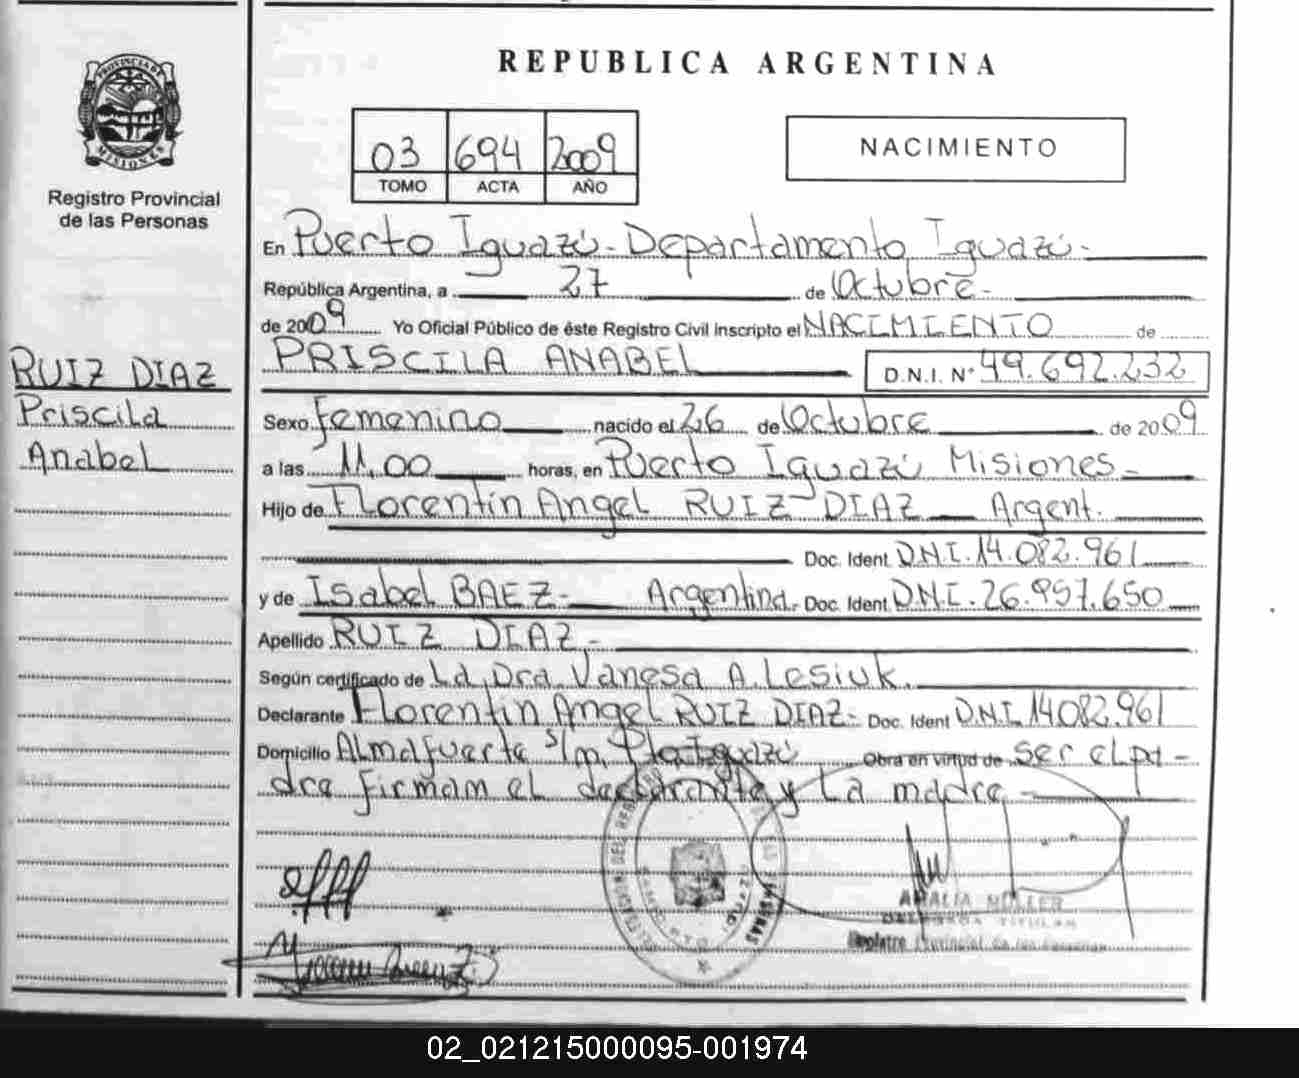 REPUBLICA ARGENTINA
PROVINCIA DE
MISIONES
Registro Provincial
de las Personas
03 694 2009
TOMO ACTA AÑO
NACIMIENTO
En Puerto Iguazú - Departamento Iguazú -
República Argentina, a 27 de Octubre -
de 2009 Yo Oficial Público de éste Registro Civil Inscripto el NACIMIENTO de
PRISCILA ANABEL D.N.I. N° 49.692.232
RUIZ DIAZ
Priscila
Anabel
Sexo femenino nacido el 26 de Octubre de 2009
a las 11,00 horas, en Puerto Iguazú Misiones -
Hijo de Florentín Angel RUIZ DIAZ Argent.
Doc. Ident D.N.I. 14.082.961
y de Isabel BAEZ - Argentina. Doc. Ident D.N.I. 26.957.650
Apellido RUIZ DIAZ -
Según certificado de La Dra. Vanesa A. Lesiuk.
Declarante Florentín Angel RUIZ DIAZ - Doc. Ident D.N.I. 14.082.961
Domicilio Almafuerte s/n, Pto Iguazú Obra en virtud de ser el pa-
dre firman el declarante y La madre -
AMALIA MULLER
DELEGADA TITULAR
Registro Provincial de las Personas
02_021215000095-001974